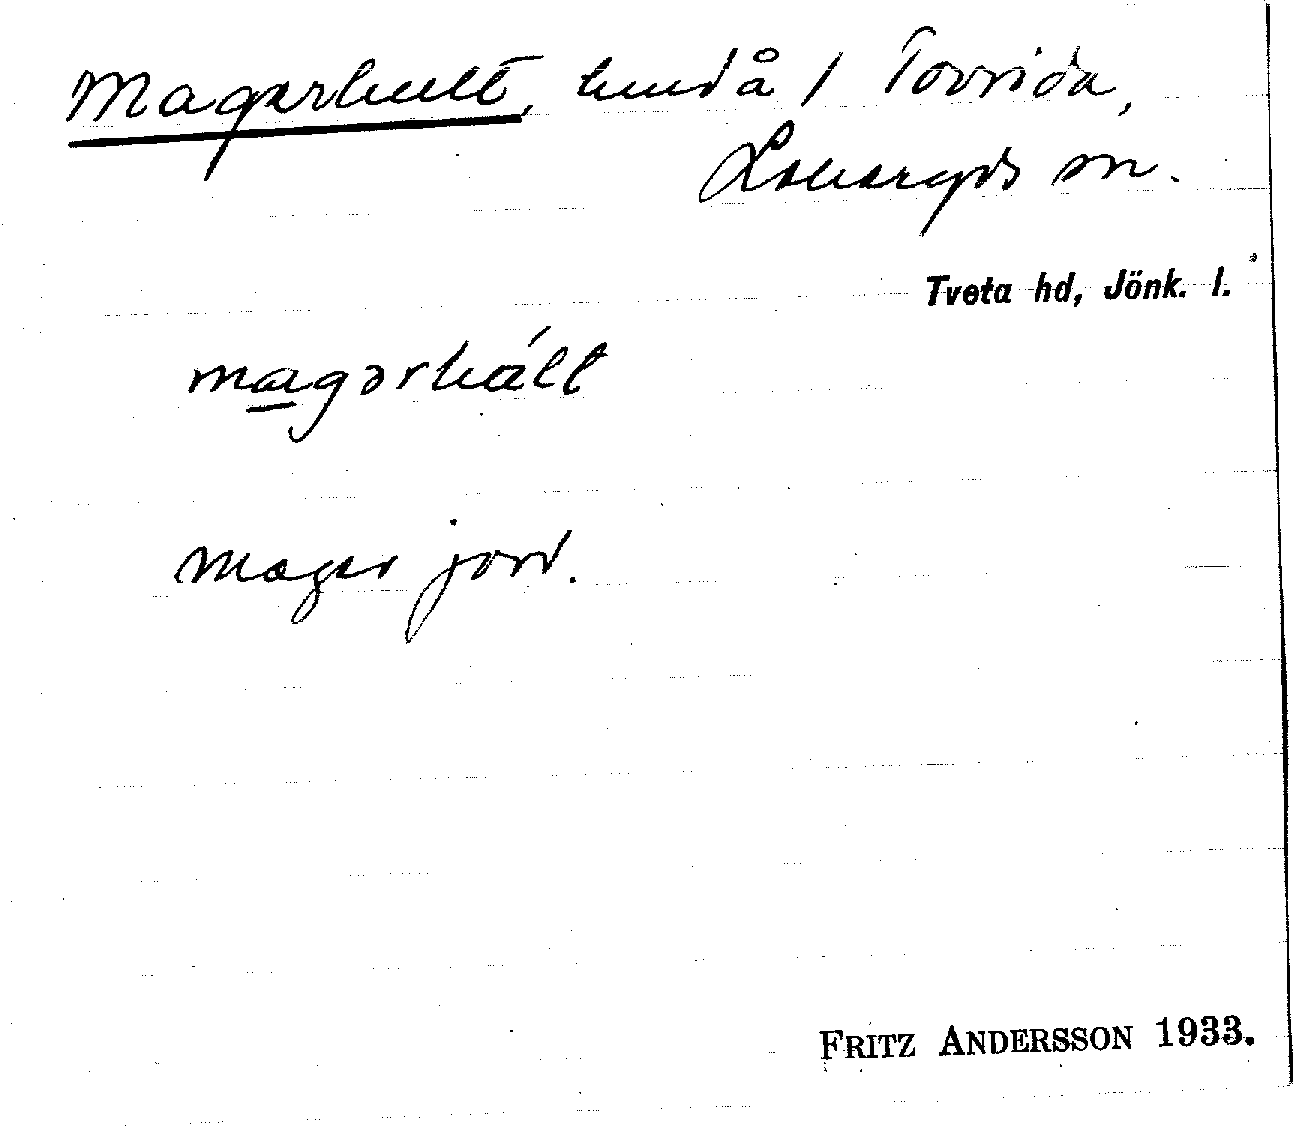 Magerhult, hmd å / Torrida,
Lekeryds sn.
Tveta hd, Jönk. l.
magərhált
Mager jord.
FRITZ ANDERSSON 1933.